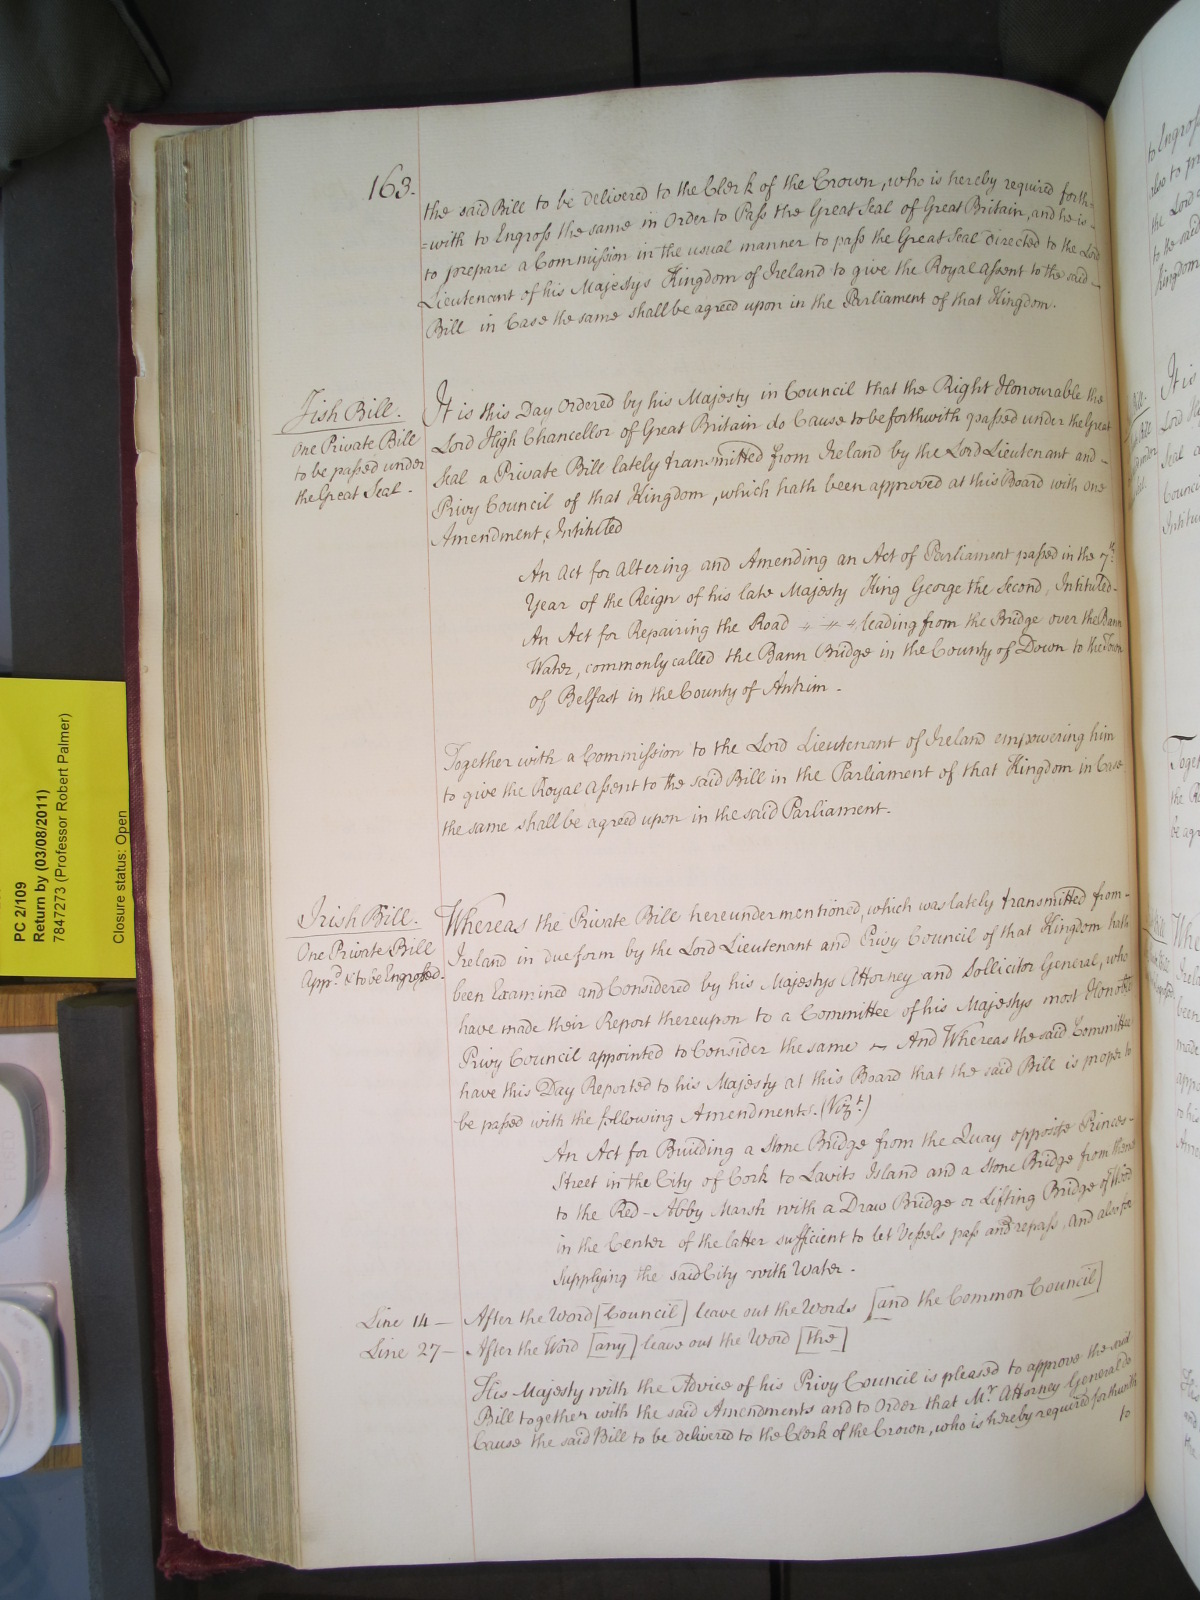 163.
the said Bill to be delivered to the Clerk of the Crown, who is hereby required forth=
=with to Engross the same in Order to Pass the Great Seal of Great Britain, and he is -
to prepare a Commission in the usual manner to pass the Great Seal directed to the Lord
Lieutenant of his Majestys Kingdom of Ireland to give the Royal Assent to the said -
Bill in Case the same shall be agreed upon in the Parliament of that Kingdom.
Irish Bill.
One Private Bill
to be passed under
the Great Seal -
It is this Day Ordered by his Majesty in Council that the Right Honourable the
Lord High Chancellor of Great Britain do Cause to be forthwith passed under the Great
Seal a Private Bill lately transmitted from Ireland by the Lord Lieutenant and -
Privy Council of that Kingdom, which hath been approved at this Board with one
Amendment, Intituled
An Act for Altering and Amending an Act of Parliament passed in the 7th
Year of the Reign of his late Majesty King George the Second, Intituled -
An Act for Repairing the Road leading from the Bridge over the Bann
Water, commonly called the Bann Bridge in the County of Down to the Town
of Belfast in the County of Antrim -
Together with a Commission to the Lord Lieutenant of Ireland empowering him
to give the Royal Assent to the said Bill in the Parliament of that Kingdom in Case
the same shall be agreed upon in the said Parliament.
Irish Bill.
One Private Bill
Appr.d & to be Engrossed.
Whereas the Private Bill hereundermentioned, which was lately transmitted from -
Ireland in due form by the Lord Lieutenant and Privy Council of that Kingdom hath
been Examined and Considered by his Majestys Attorney and Sollicitor General, who
have made their Report thereupon to a Committee of his Majestys most Honoble
Privy Council appointed to Consider the same ~ And Whereas the said Committee
have this Day Reported to his Majesty at this Board that the said Bill is proper to
be passed with the following Amendments. (Vizt.)
An Act for Building a Stone Bridge from the Quay opposite Princes -
Street in the City of Cork to Lavits Island and a Stone Bridge from thence
to the Red-Abby Marsh with a Draw Bridge or Lifting Bridge of Wood
in the Center of the latter sufficient to let Vessels pass and repass, and also for
Supplying the said City with Water -
Line 14 - After the Word [Council] leave out the Words [and the Common Council]
Line 27 - After the Word [any] leave out the Word [the]
His Majesty with the Advice of his Privy Council is pleased to approve the said
Bill together with the said Amendments and to Order that Mr. Attorney General do
Cause the said Bill to be delivered to the Clerk of the Crown, who is hereby required forthwith
to
PC 2/109
Return by (03/08/2011)
7847273 (Professor Robert Palmer)
Closure status: Open